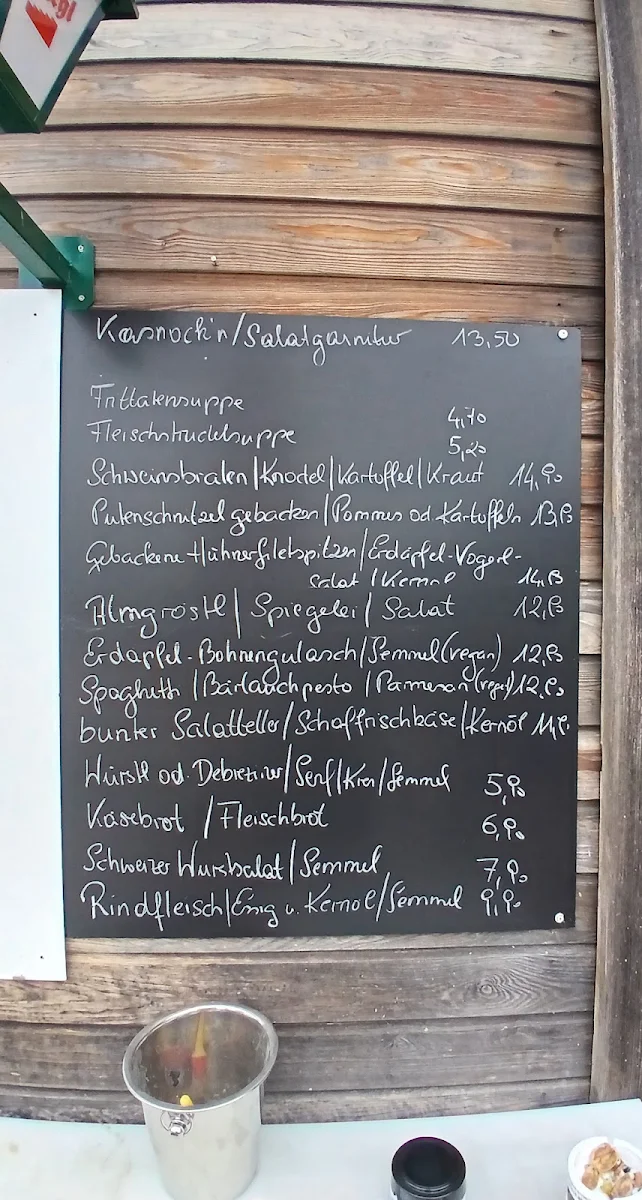 Kasnock'n/Salatgarnitur 13,50
Frittatensuppe 4,70
Fleischstrudelsuppe 5,20
Schweinsbraten/Knödel/Kartoffel/Kraut 14,90
Putenschnitzel gebacken/Pommes od. Kartoffeln 13,90
Gebackene Hühnerfiletspitzen/Erdäpfel-Vogerl-
salat/Kernöl 14,90
Almgröstl/Spiegelei/Salat 12,90
Erdäpfel-Bohnengulasch/Semmel (vegan) 12,90
Spaghetti/Bärlauchpesto/Parmesan (veget) 12,90
bunter Salatteller/Schaffrischkäse/Kernöl 11,90
Würstl od. Debreziner/Senf/Kren/Semmel 5,90
Käsebrot/Fleischbrot 6,90
Schweizer Wurstsalat/Semmel 7,90
Rindfleisch/Essig u. Kernöl/Semmel 9,90